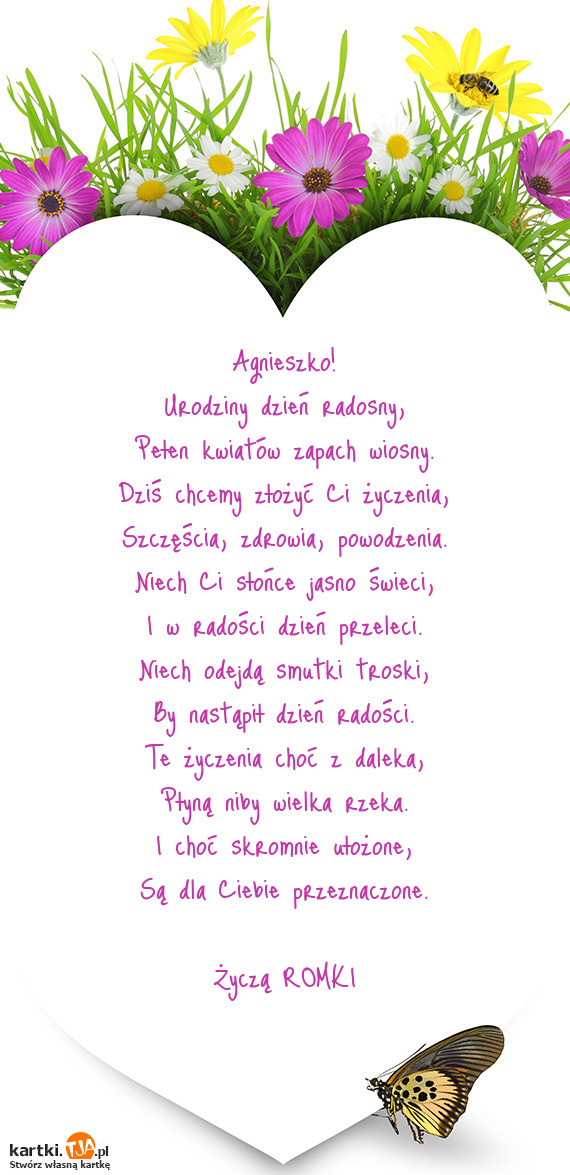 Agnieszko!
Urodziny dzień radosny,
Pełen kwiatów zapach wiosny.
Dziś chcemy złożyć Ci życzenia,
Szczęścia, zdrowia, powodzenia.
Niech Ci słońce jasno świeci,
I w radości dzień przeleci.
Niech odejdą smutki troski,
By nastąpił dzień radości.
Te życzenia choć z daleka,
Płyną niby wielka rzeka.
I choć skromnie ułożone,
Są dla Ciebie przeznaczone.
Życzą ROMKI
kartki.TJA.pl
Stwórz własną kartkę